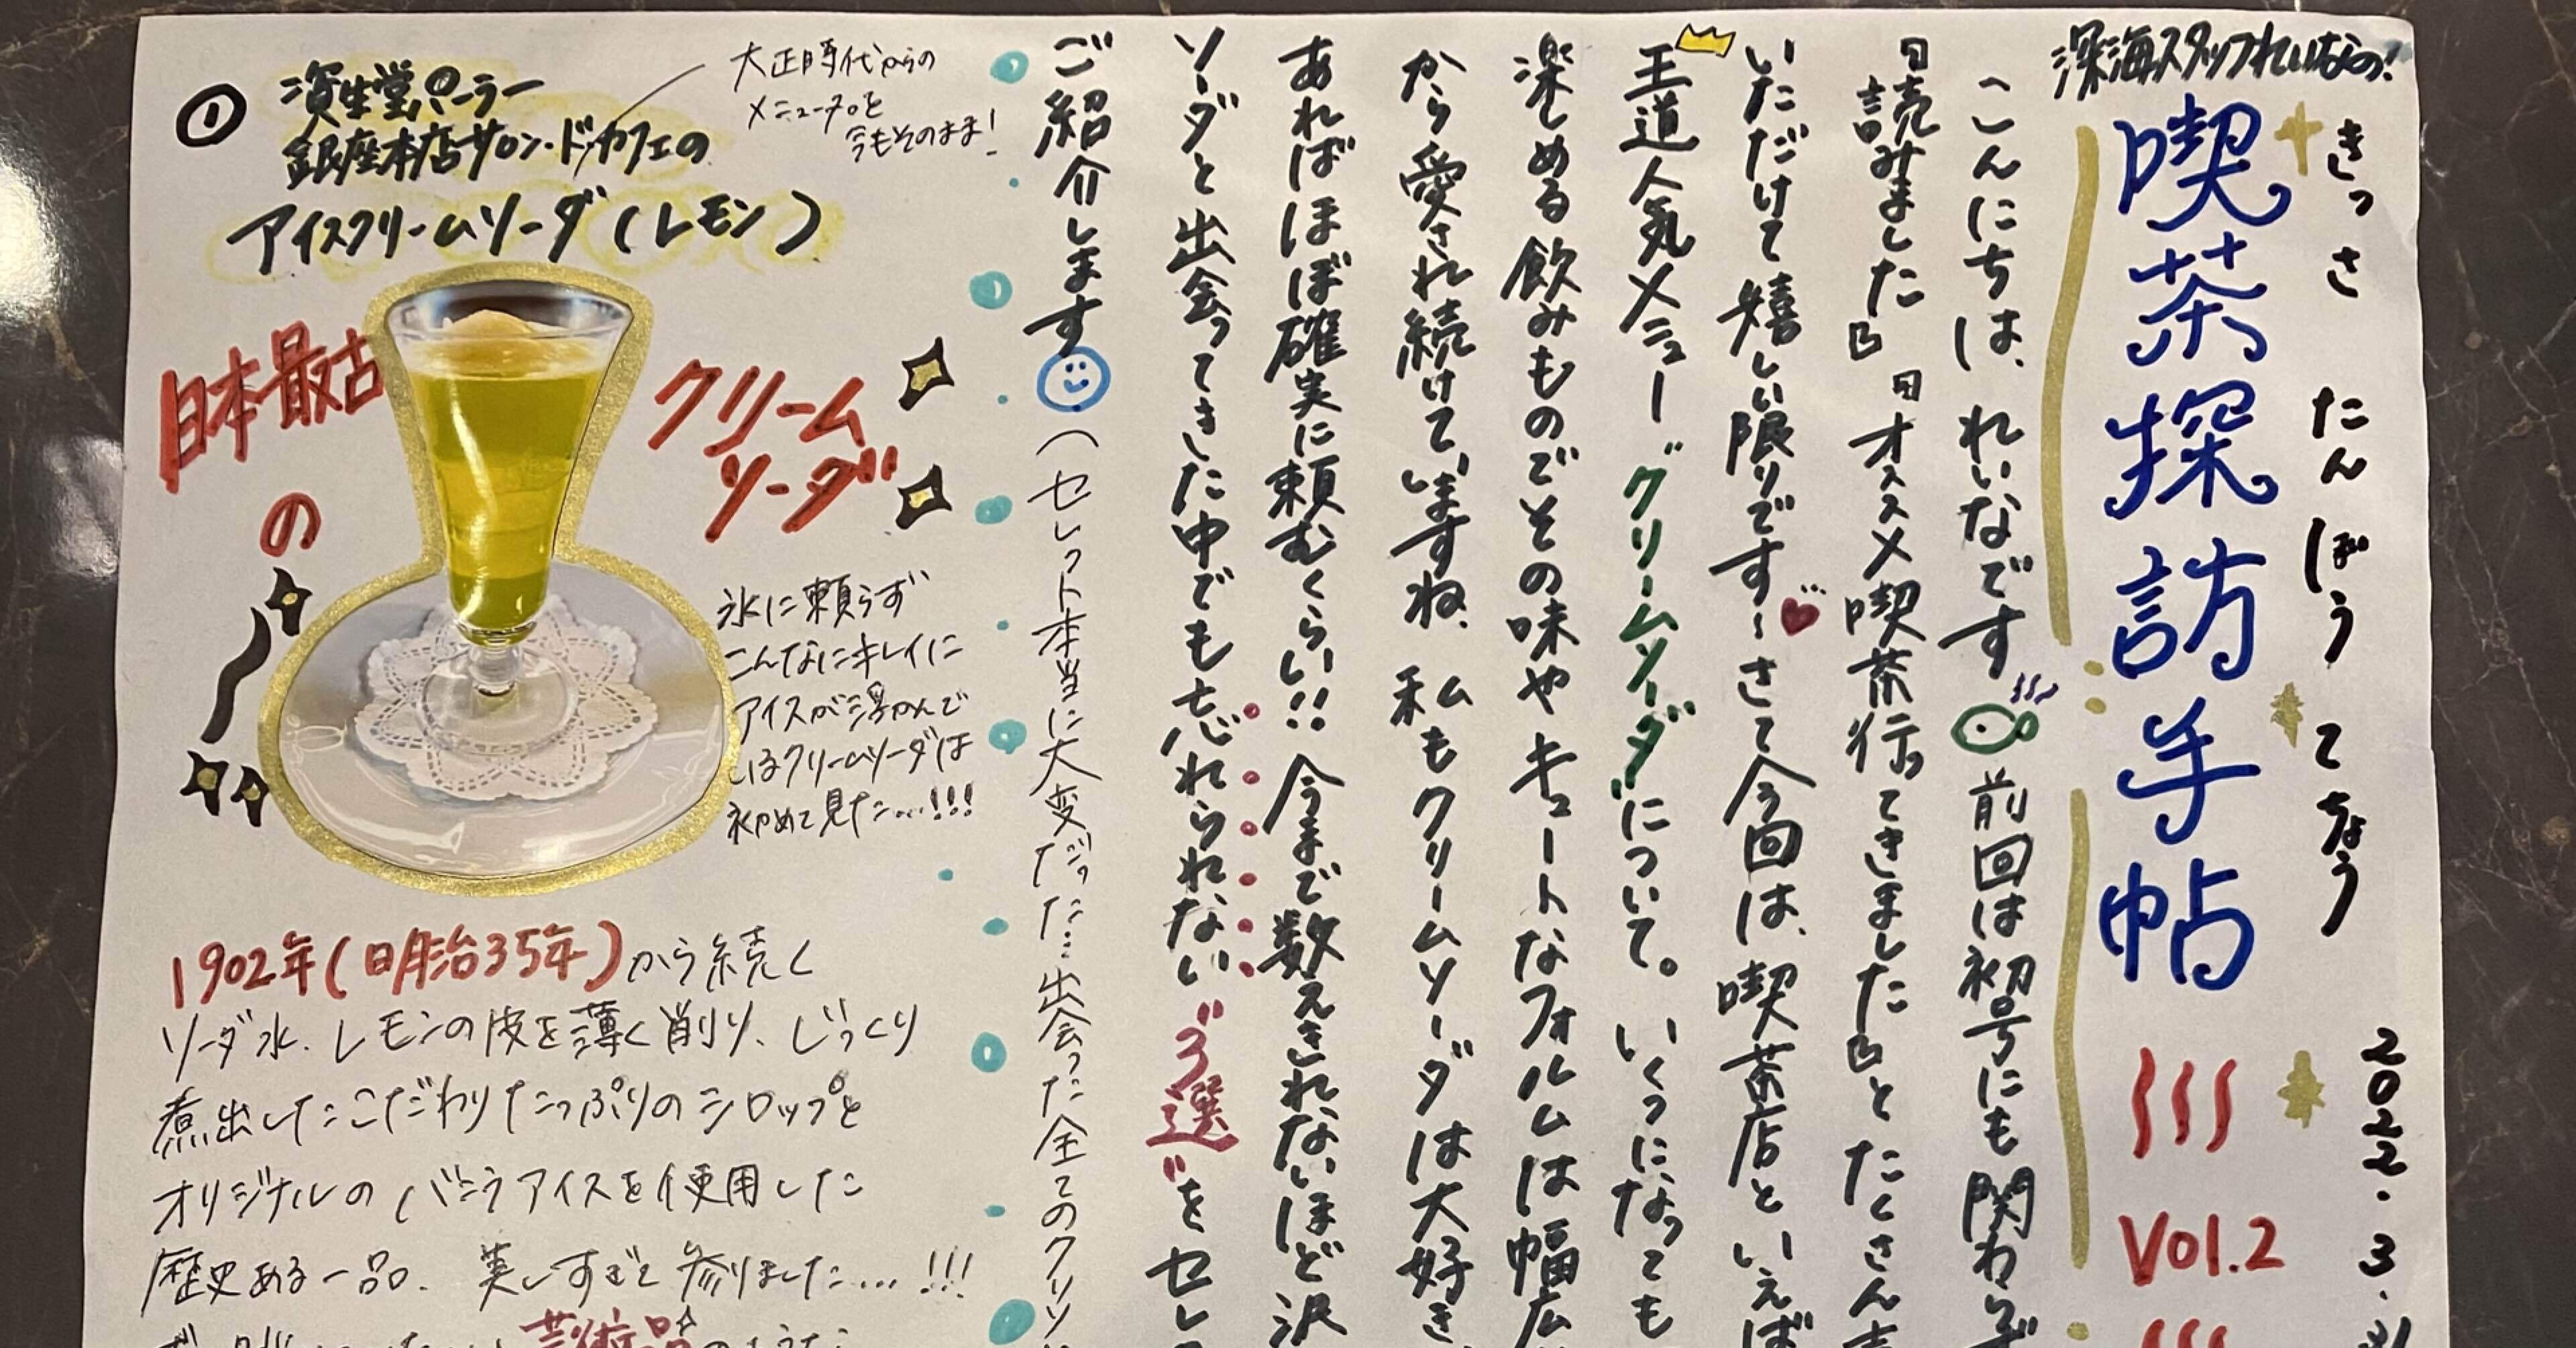 深海スタッフれいなの!
きっさ たんぼう てちょう
喫茶探訪手帖
Vol.2
2022.3.31
こんにちは、れいなです 前回は初号にも関わらず
『読みました』『オススメ喫茶行ってきました』とたくさん
いただけて嬉しい限りです〜さて今回は、喫茶店といえば
王道人気メニュー"クリームソーダ"について。いくつになっても
楽しめる飲みものでその味やキュートなフォルムは幅広
から愛され続けていますね、私もクリームソーダは大好き、
あればほぼ確実に頼むくらい!!今まで数えきれないほど沢
ソーダと出会ってきた中でも忘れられない"3選"をセレ
ご紹介します(セレクト本当に大変だった…出会った全てのクリソ
①
資生堂パーラー
銀座本店サロン・ド・カフェの
アイスクリームソーダ(レモン)
大正時代からの
メニュー名を
今もそのまま!
日本最古
の
クリーム
ソーダ
氷に頼らず
こんなにキレイに
アイスが浮かんで
いるクリームソーダは
初めて見た…!!!
1902年(明治35年)から続く
ソーダ水、レモンの皮を薄く削り、じっくり
煮出したこだわりたっぷりのシロップと
オリジナルのバニラアイスを使用した
歴史ある一品、美しすぎて参りました…!!!
芸術品のような